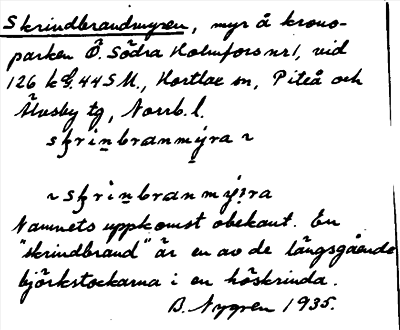 Skrindbrandmyren, myr å krono-
parken Ö. Södra Holmfors nr 1, vid
126 kf. 44 S M., Hortlax sn, Piteå och
Älvsby tg, Norrb. l.
skrinbranmyra ~
~ skrinbranmyra
Namnets uppkomst obekant. En
"skrindbrand" är en av de längsgående
björkstockarna i en höskrinda.
B. Nygren 1935.